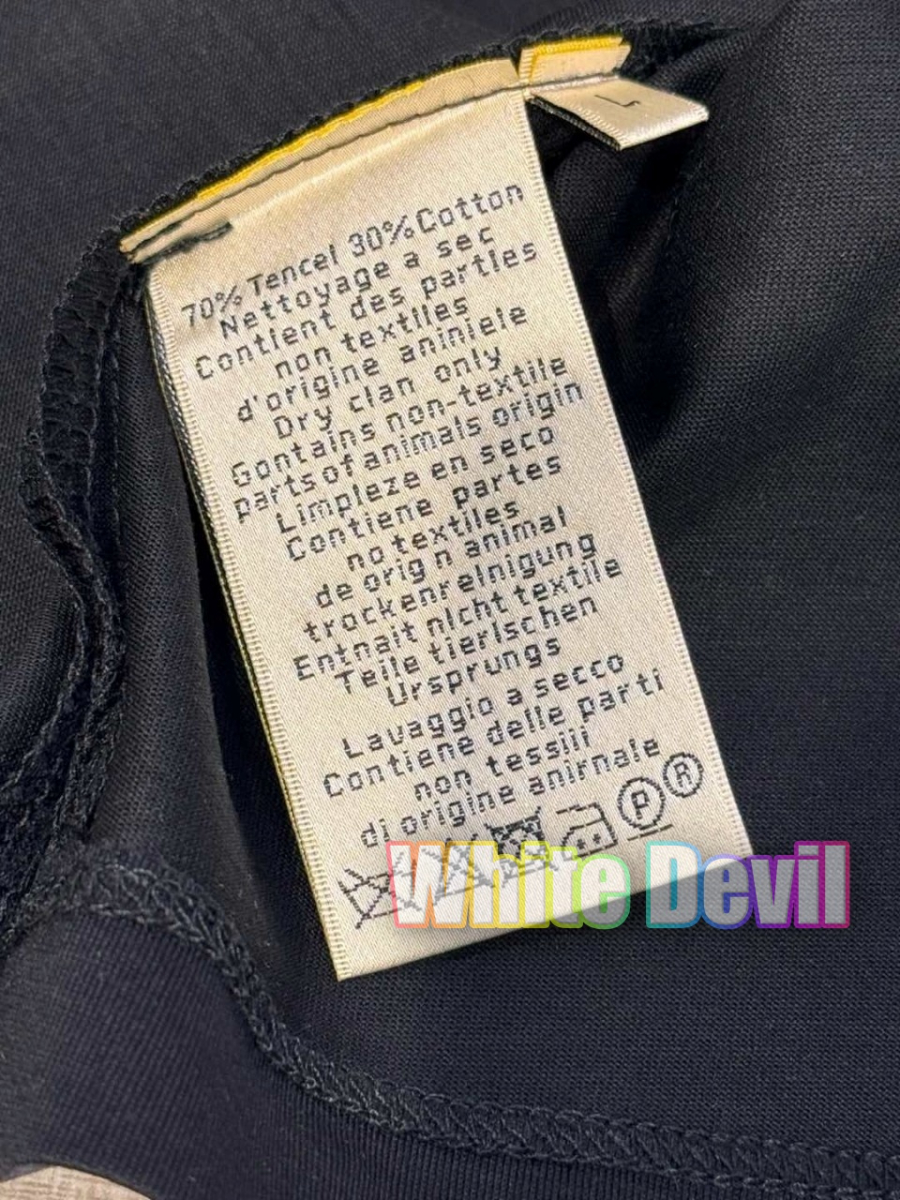 L
70% Tencel 30%Cotton
Nettoyage a sec
Contient des parties
non textiles
d'origine aniniele
Dry clan only
Gontains non-textile
parts of animals origin
Limpleze en seco
Contiene partes
no textiles
de orig n animal
trockenreinigung
Entnait nicht textile
Teile tierischen
Ursprungs
Lavaggio a secco
Contiene delle parti
non tessiii
di origine anirnale
P R
White Devil